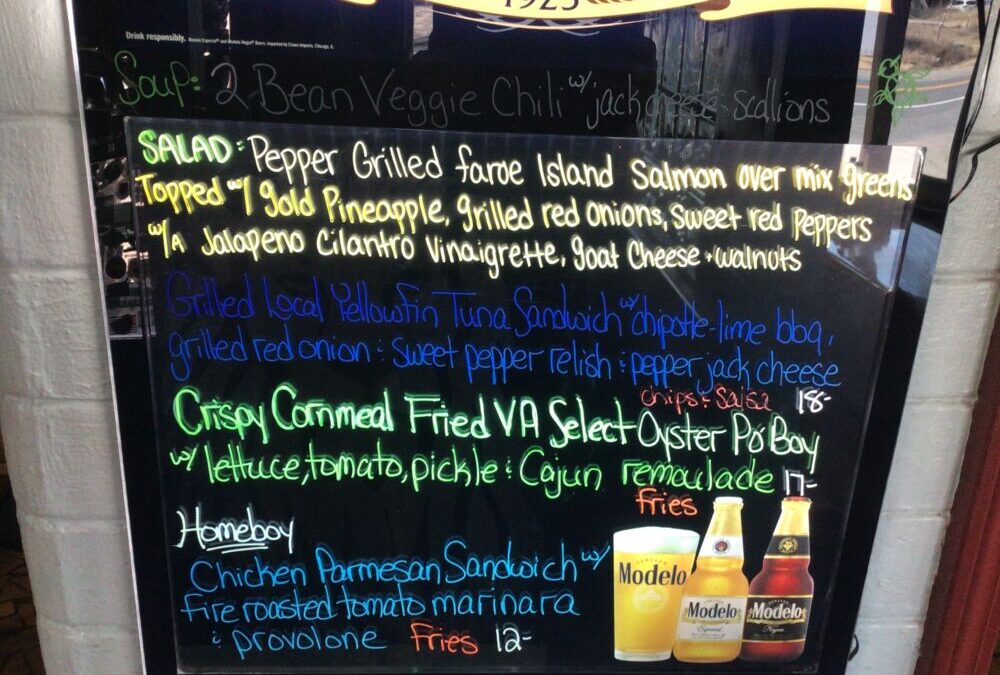 1925
Drink responsibly. Modelo Especial® and Modelo Negra® Beers. Imported by Crown Imports, Chicago, IL
Soup: 2-Bean Veggie Chili w/ jack cheese + scallions
SALAD: Pepper Grilled faroe Island Salmon over mix greens
Topped w/ gold Pineapple, grilled red onions, sweet red Peppers
w/A Jalapeno Cilantro Vinaigrette, goat Cheese + walnuts
Grilled Local Yellowfin Tuna Sandwich w/ chipotle-lime bbq,
grilled red onion & sweet pepper relish & pepper jack cheese
chips & salsa 18-
Crispy Cornmeal Fried VA Select Oyster Po'Boy
w/ lettuce, tomato, pickle & Cajun remoulade 17-
fries
Homeboy
Chicken Parmesan Sandwich w/
fire roasted tomato marinara
& provolone fries 12-
Modelo
Modelo
Especial
Modelo
Negra